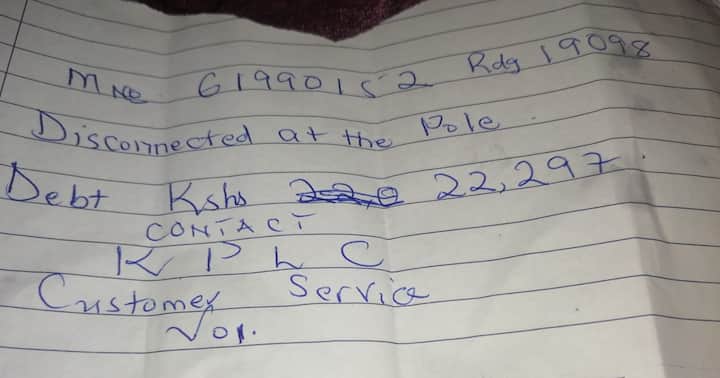 M No 61990152 Rdg 19098
Disconnected at the Pole.
Debt Kshs 22,297.
CONTACT
KPLC
Customer Service
Voi.